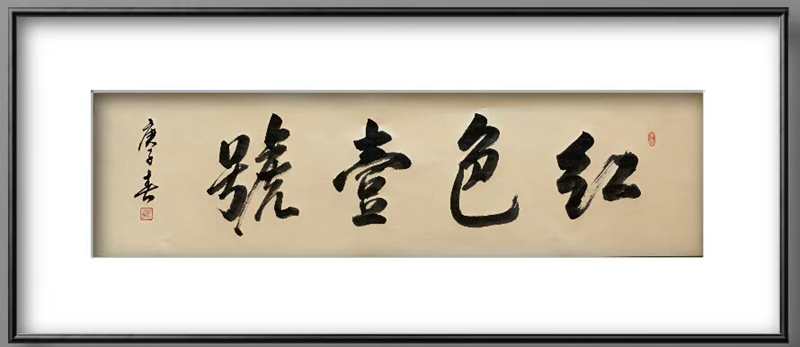 红色壹號
庚子春